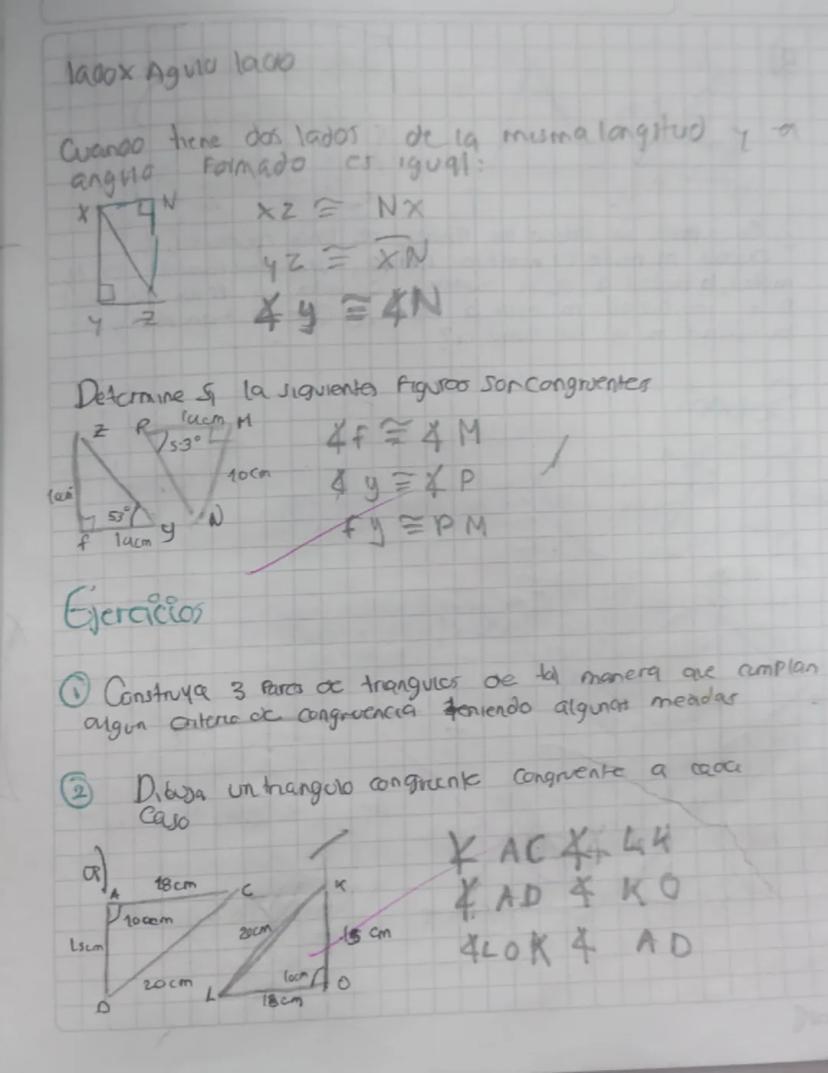 lado x Agulo lado
Cuando tiene dos lados de la misma longitud y
angulo Formado es igual:
X N
Y Z
XZ ≅ NX
YZ ≅ XN
∡ y ≅ ∡N
Determine si la siguientes figuras son congruentes
Z P 14cm M
53°
10cm
53°
f 14cm y N
∡f ≅ ∡ M
∡ y ≅ ∡ P
fy ≅ PM
Ejercicios
① Construya 3 Pares de triangulos de tal manera que cumplan
algun criterio de congruencia teniendo algunas medidas
② Dibuja un triangulo congruente congruente a cada
Caso
a)
A 18cm C
15cm
20cm
D
K
20cm 15 cm
L 18cm O
∡ AC ∡ LK
∡ AD ∡ KO
∡LOK ∡ AD